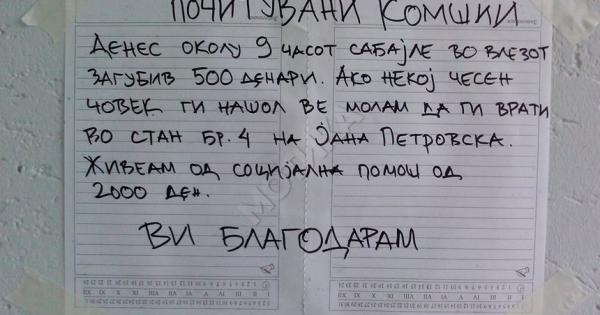 ПОЧИТУВАНИ КОМШИИ
ДЕНЕС ОКОЛУ 9 ЧАСОТ САБАЈЛЕ ВО ВЛЕЗОТ
ЗАГУБИВ 500 ДЕНАРИ. АКО НЕКОЈ ЧЕСЕН
ЧОВЕК ГИ НАШОЛ ВЕ МОЛАМ ДА ГИ ВРАТИ
ВО СТАН БР. 4 НА ЈАНА ПЕТРОВСКА.
ЖИВЕАМ ОД СОЦИЈАЛНА ПОМОШ ОД
2000 ДЕН.
ВИ БЛАГОДАРАМ